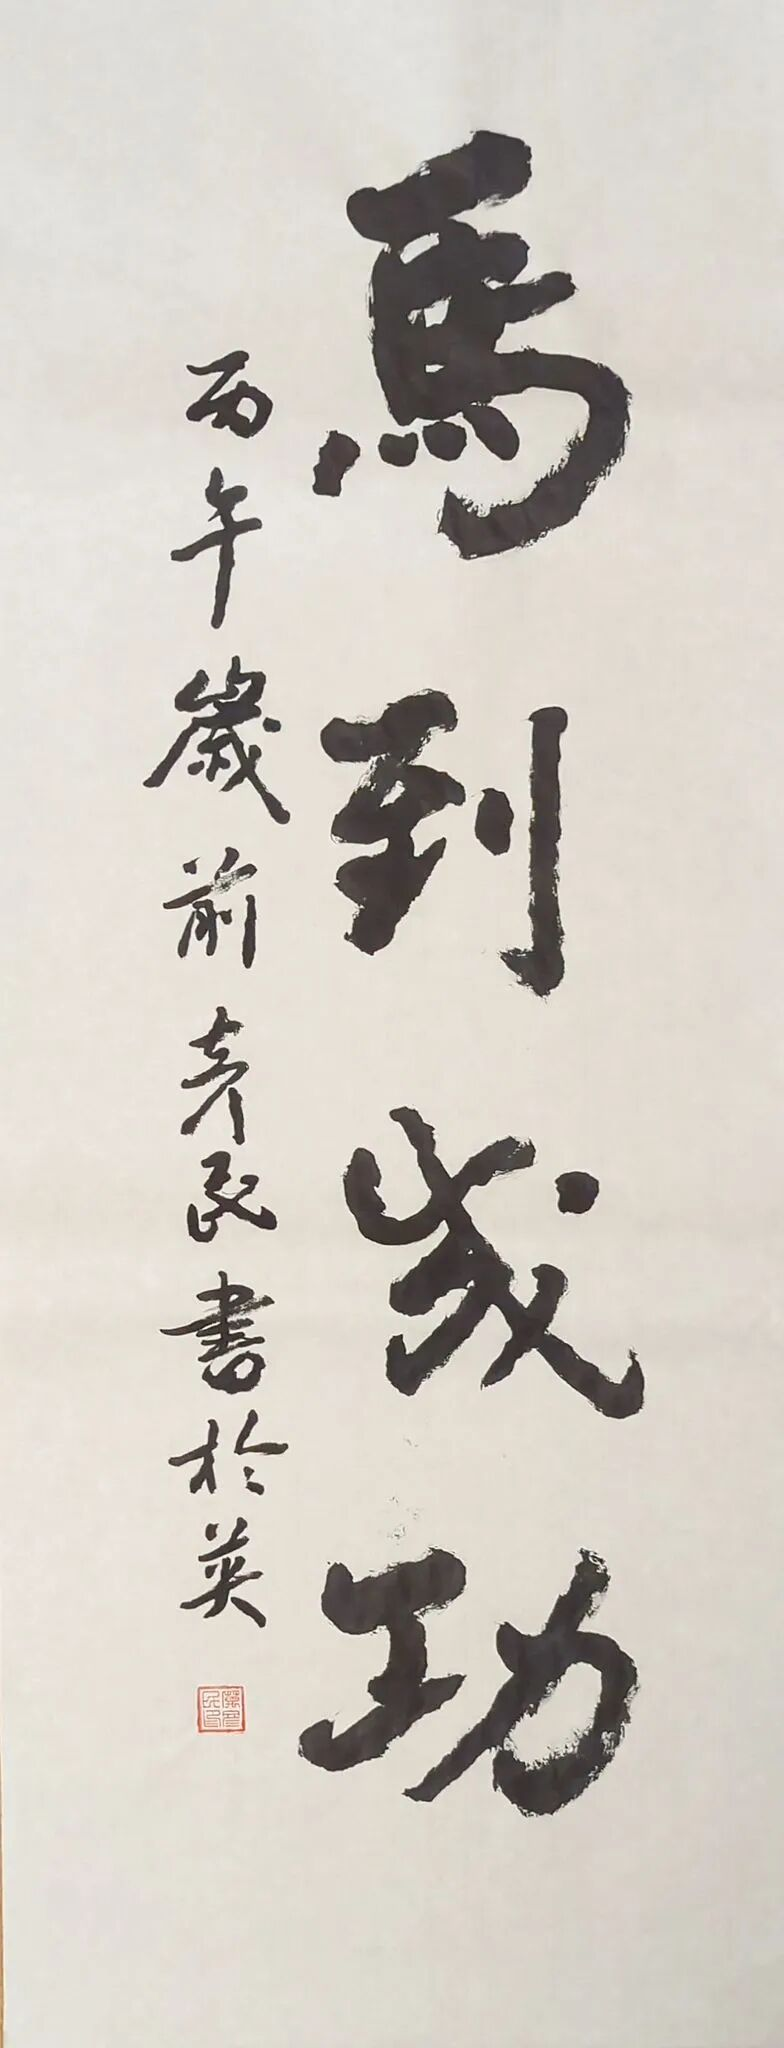 馬到成功
丙午歲前彥民書於英